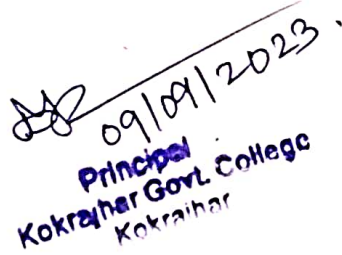 09/09/2023.
Principal
Kokrajhar Govt. College
Kokrajhar